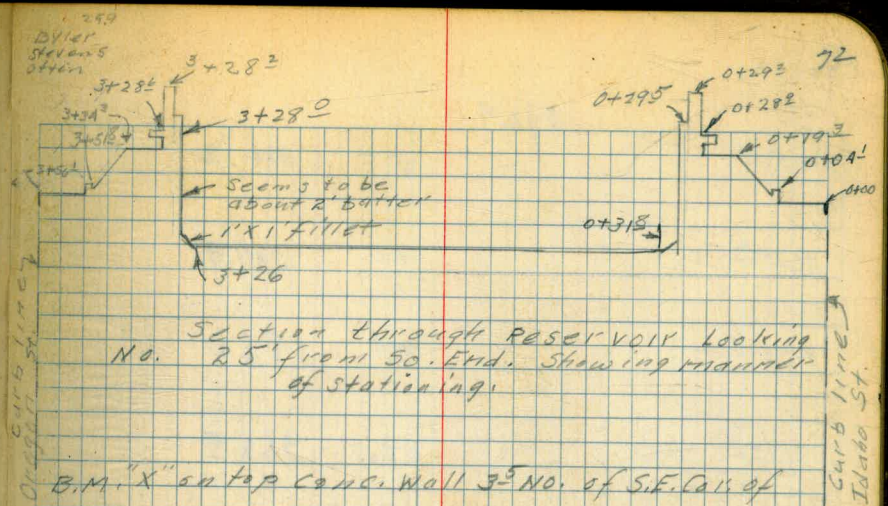 259
Byler
Stevens
72
3+28²
3+28⁶
3+28⁰
3+34³
3+51⁸
3+56¹
0+29⁵
0+29³
0+28²
0+19³
0+04¹
0+00
seems to be
about 2' batter
1' X 1' fillet
0+31⁸
3+26
Section through Reservoir Looking
No. 25' from So. End. Showing manner
of stationing.
Curb line
Oregon St.
Curb line
Idaho St.
B.M. "X" on top Conc. Wall 3⁵ No. of S.E. Cor. of